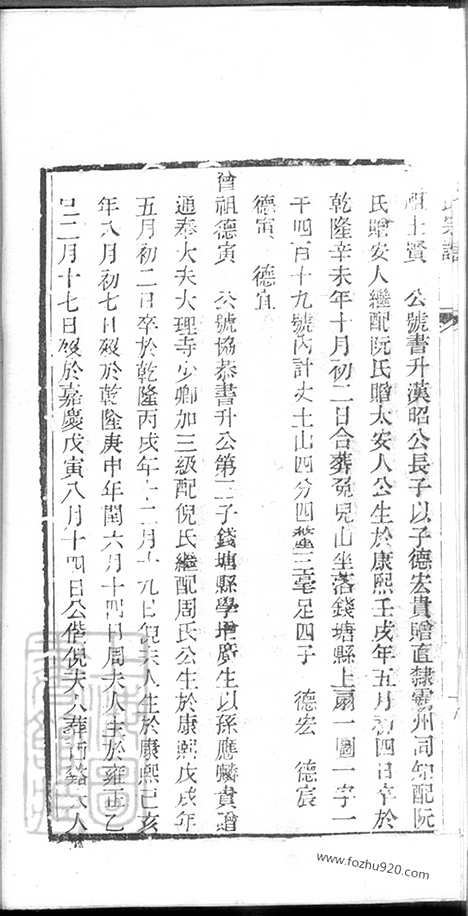 氏宗譜
祖士賢　公號書升漢昭公長子以子德宏貴贈直隸霸州同知配阮
氏贈安人繼配阮氏贈太安人公生於康熙壬戌年五月初四日卒於
乾隆辛未年十月初二日合葬兔兒山坐落錢塘縣上扇一圖一字一
千四百十九號內計丈土山四分四釐三毫足四子　德宏　德宸
德寅　德宜
曾祖德寅　公號協恭書升公第三子錢塘縣學增廣生以孫應麟貴贈
通奉大夫大理寺少卿加三級配倪氏繼配周氏公生於康熙戊戌年
五月初二日卒於乾隆丙戌年十二月十九日倪夫人生於康熙己亥
年八月初七日歿於乾隆庚申年閏六月十四日周夫人生於雍正乙
巳二月十七日歿於嘉慶戊寅八月十四日公偕倪夫人葬
夫人
www.fozhu920.com